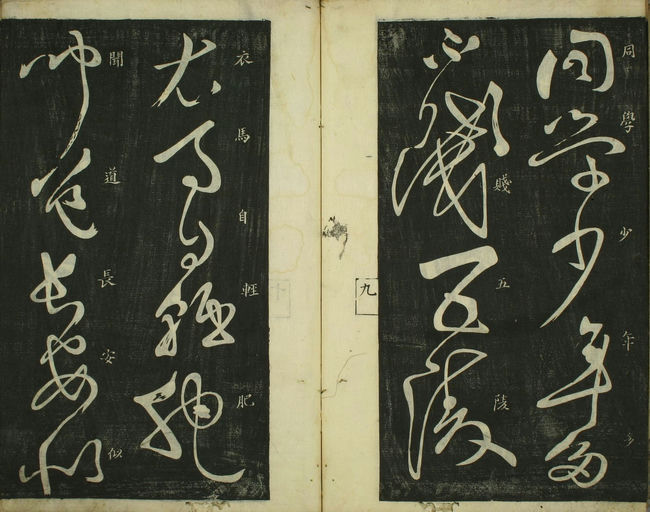 同學少年多
同學少年多
賤五陵
不賤五陵
九
衣馬自輕肥
衣馬自輕肥
聞道長安似
聞道長安似